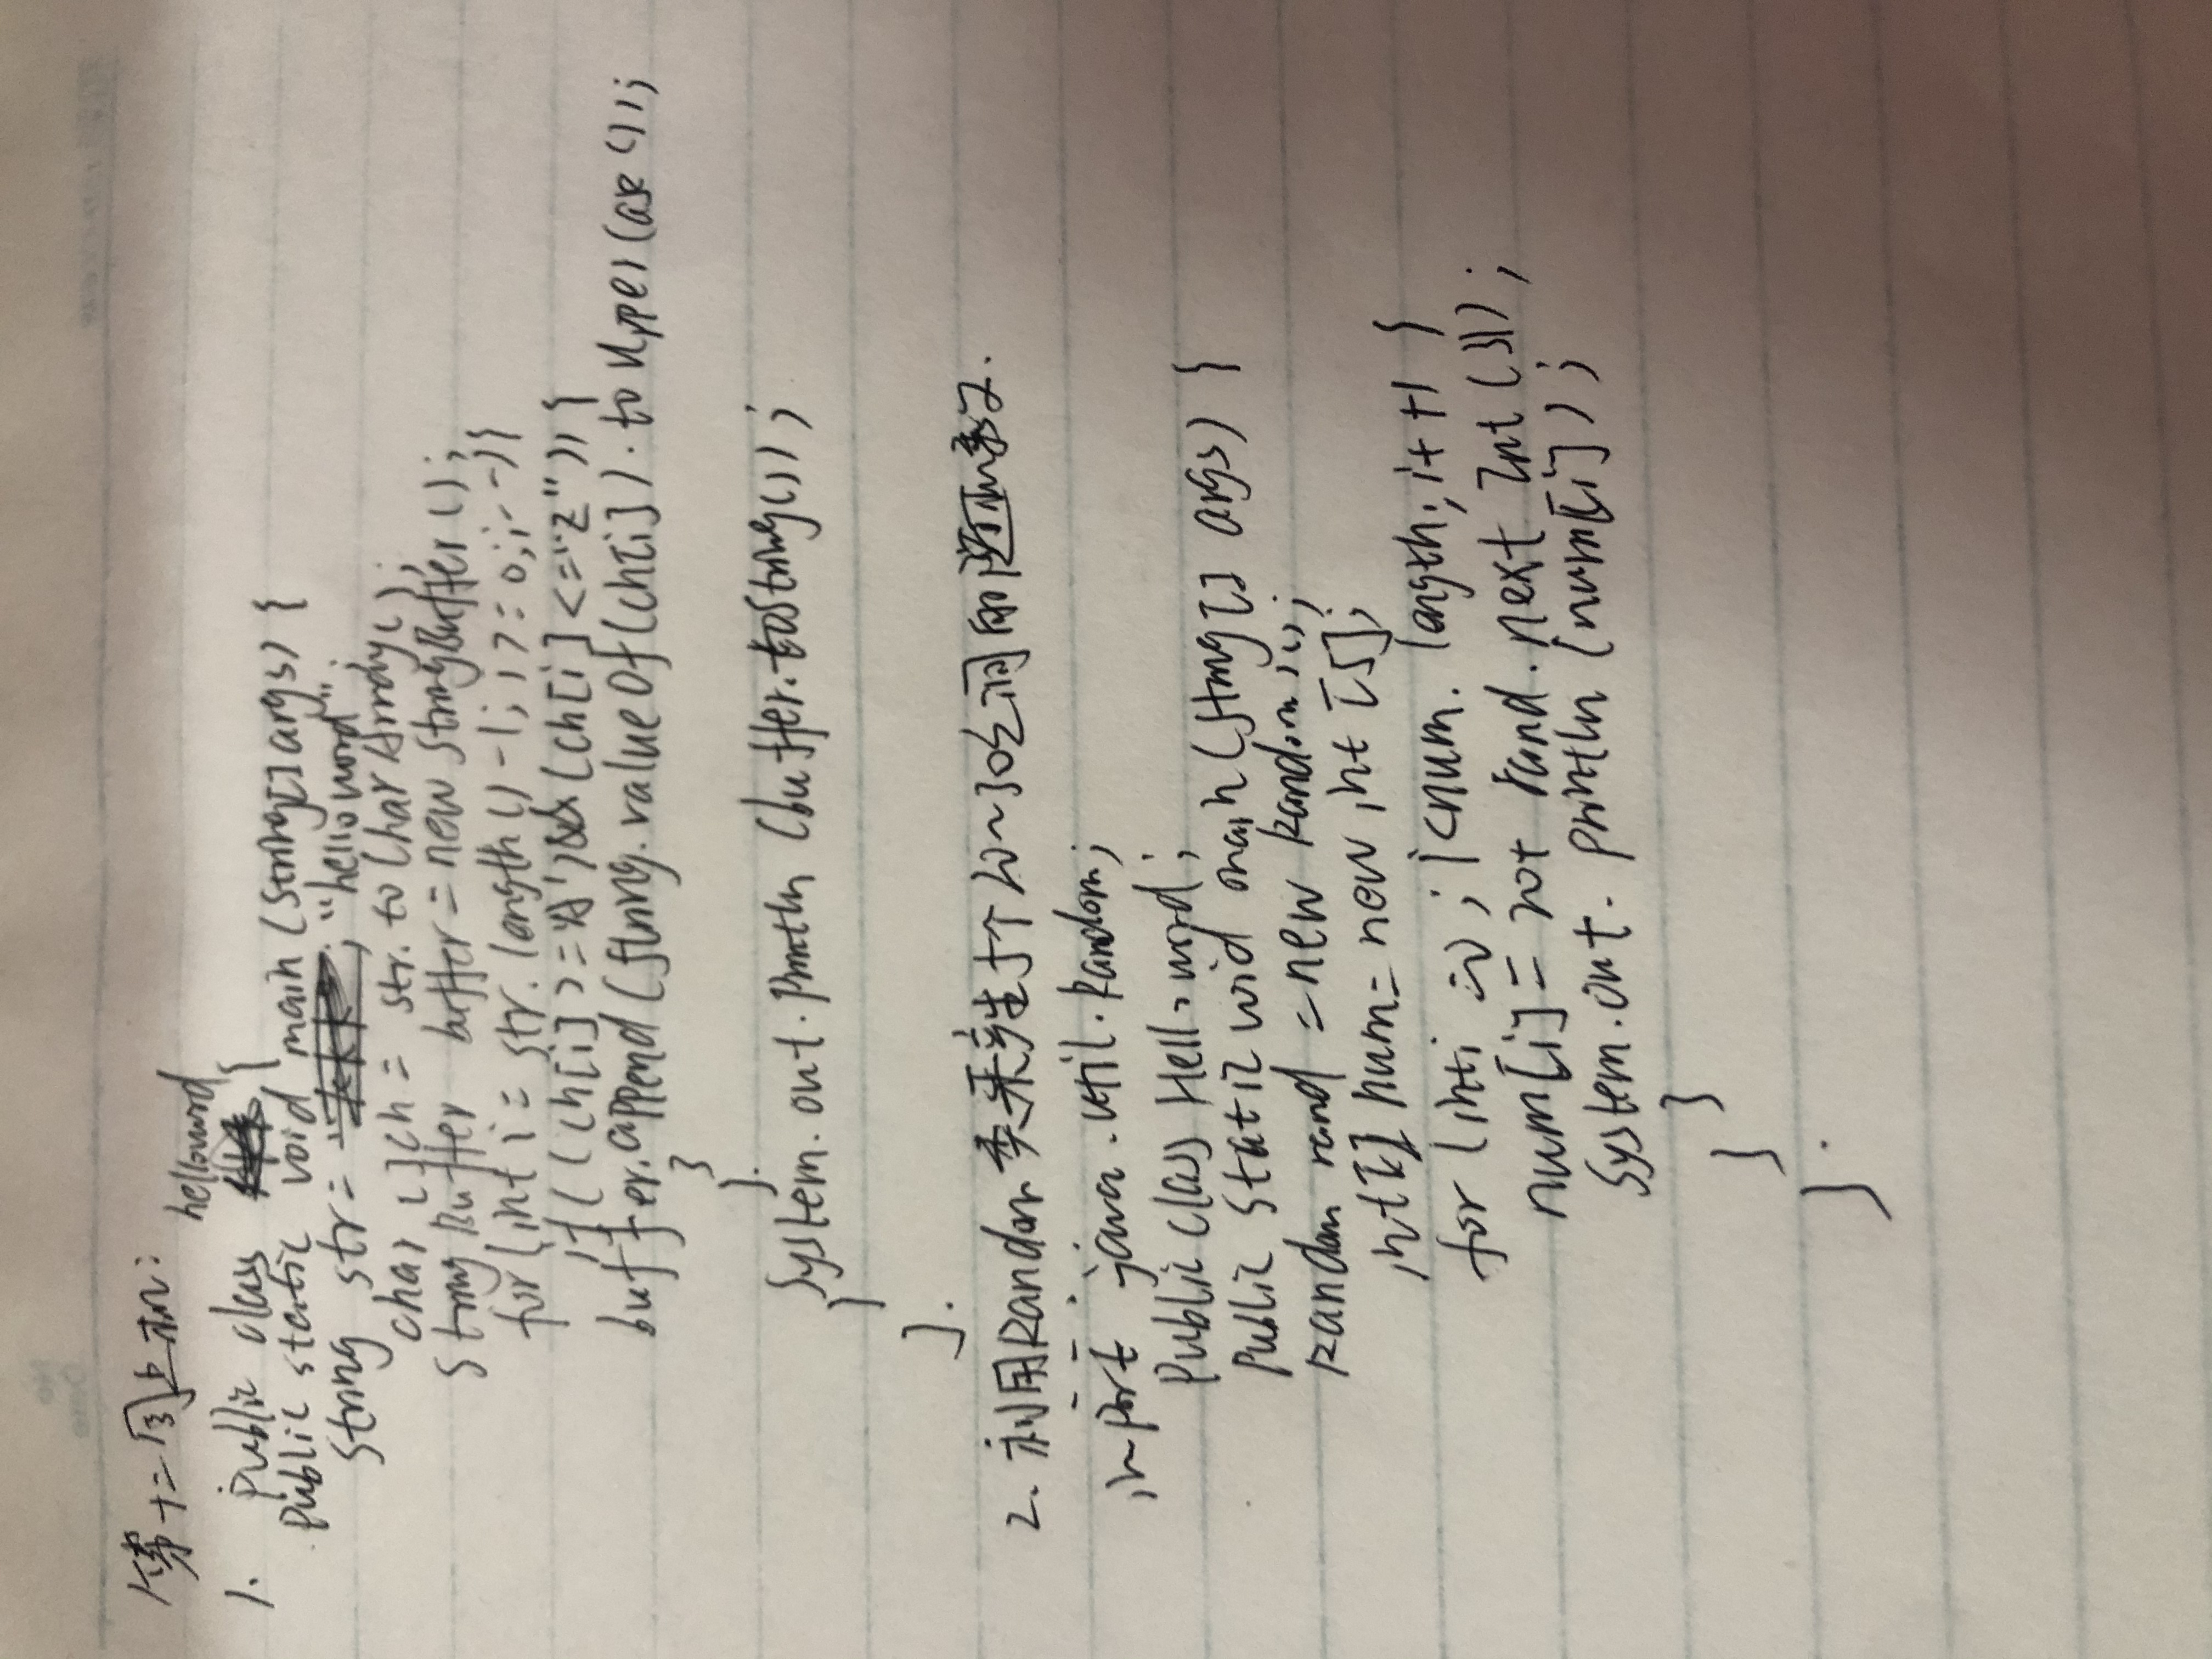 第十二周上机:
1. Public class helloword {
Public static void main (String[] args) {
String str = "helloword".
char []ch = str. to Char Array();
String Buffer buffer = new StringBuffer();
for (int i = str. length() -1; i >= 0; i--){
if ((ch[i] >= 'A') && (ch[i] <= "Z")) {
buffer.append (String. value Of (ch[i]) . to Upper Case ());
}
}.
System. out. Println (buffer. toString());
}
}.
2. 利用Random 类来产生5个 20~30之间的
import java . util . Random;
Public class Hello word;
Public static void main (String [] args) {
Random rand = new Random ();
int[] num = new int [5];
for (int i =0; i<num. length; i++) {
num[i] = 20+ rand. next Int ();
System. out. Println (num[i]);
}
}
}.